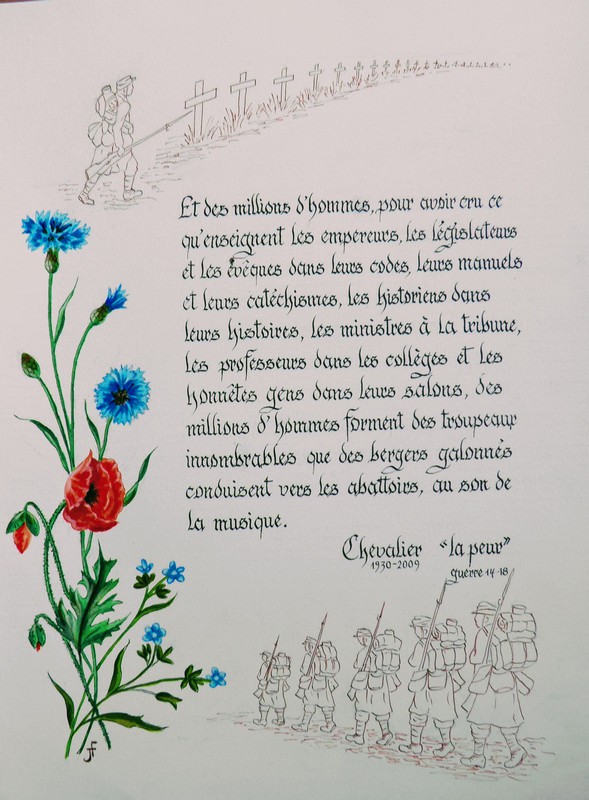 Et des millions d'hommes, pour avoir cru ce
qu'enseignent les empereurs, les législateurs
et les évêques dans leurs codes, leurs manuels
et leurs catéchismes, les historiens dans
leurs histoires, les ministres à la tribune,
les professeurs dans les collèges et les
honnêtes gens dans leurs salons, des
millions d'hommes forment des troupeaux
innombrables que des bergers galonnés
conduisent vers les abattoirs, au son de
la musique.
Chevalier "la peur"
1930-2009 guerre 14-18
JF